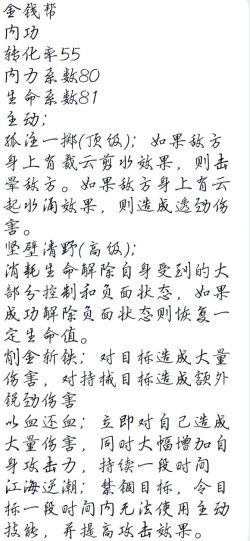 金钱帮
内功
转化率55
内力系数80
生命系数81
主动;
孤注一掷(顶级); 如果敌方
身上有裁云剪水效果，则击
晕敌方。如果敌方身上有云
起水涌效果，则造成透劲伤
害。
坚壁清野(高级);
消耗生命解除自身受到的大
部分控制和负面状态，如果
成功解除负面状态则恢复一
定生命值。
削金斩铁; 对目标造成大量
伤害，对持械目标造成额外
锐劲伤害
以血还血; 立即对自己造成
大量伤害，同时大幅增加自
身攻击力，持续一段时间
江海逆潮; 禁锢目标，令目
标一段时间内无法使用主动
技能，并提高攻击效果。